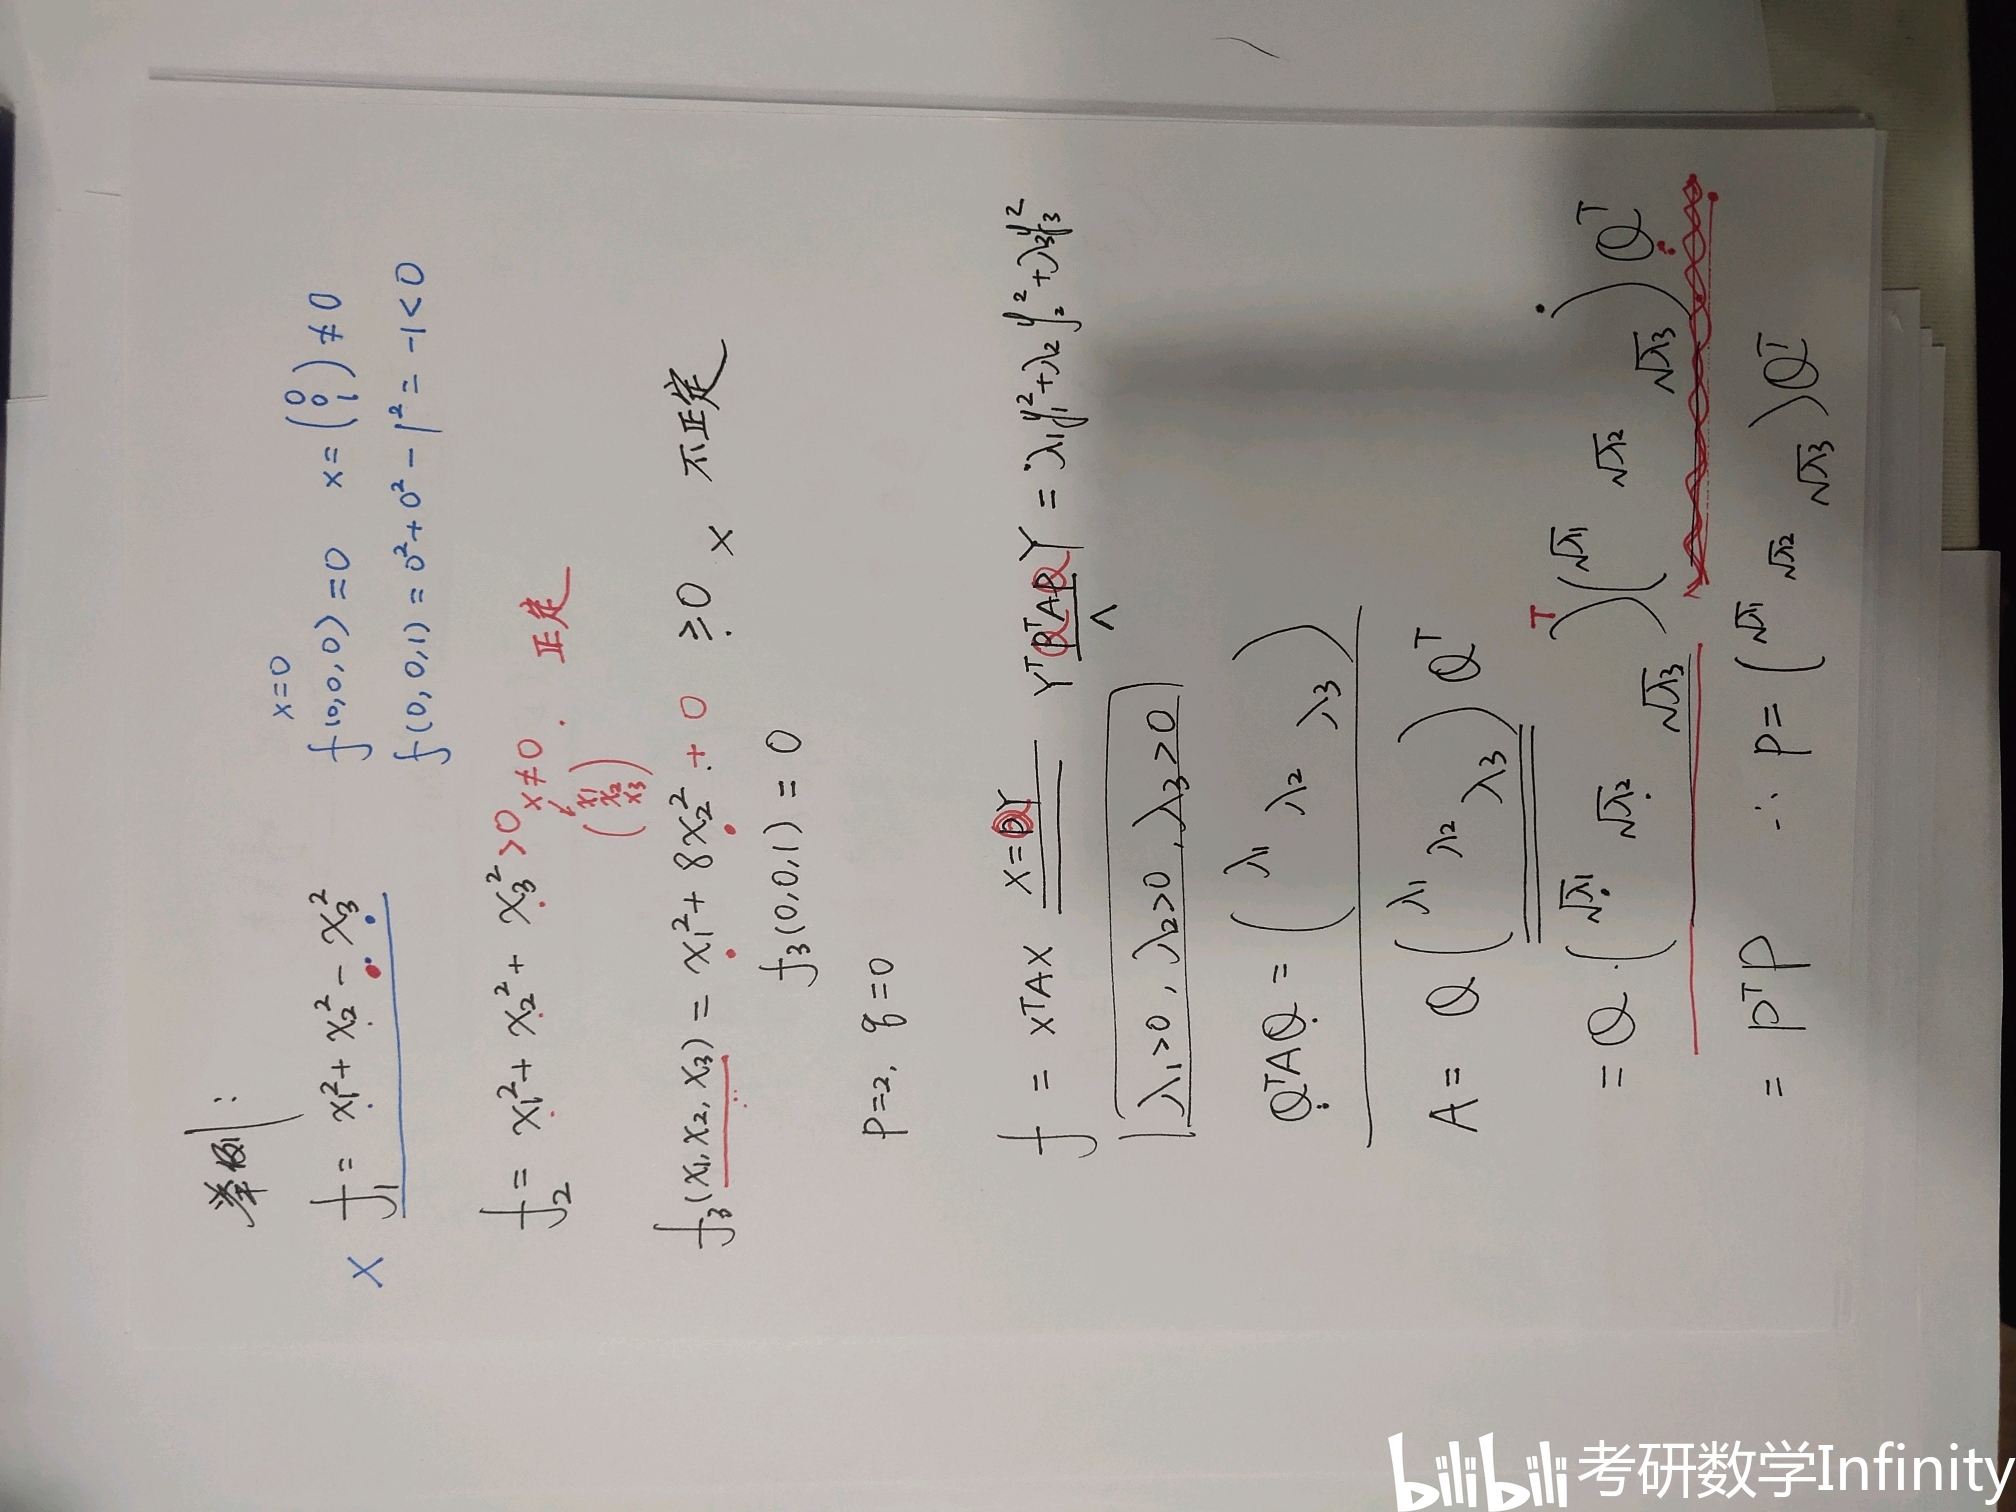 举例:
x=0
× f₁ = x₁² + x₂² - x₃² f(0,0,0)=0 x=(0 0 1) ≠0
f(0,0,1) = 0²+0²-1² = -1<0
f₂ = x₁² + x₂² + x₃² >0 x≠0. 正定
(x₁ x₂ x₃)
f₃(x₁,x₂,x₃) = x₁² + 8x₂² + 0 ≥0 × 不正定
f₃(0,0,1) = 0
p=2, q=0
f = xᵀAx x=QY YᵀQᵀAQY = λ₁y₁²+λ₂y₂²+λ₃y₃²
Λ
λ₁>0, λ₂>0, λ₃>0
QᵀAQ = (λ₁ λ₂ λ₃)
A = Q (λ₁ λ₂ λ₃) Qᵀ
= Q·(√λ₁ √λ₂ √λ₃)ᵀ(√λ₁ √λ₂ √λ₃)Qᵀ
= PᵀP ∴ P = (√λ₁ √λ₂ √λ₃)Qᵀ
bilibili 考研数学Infinity